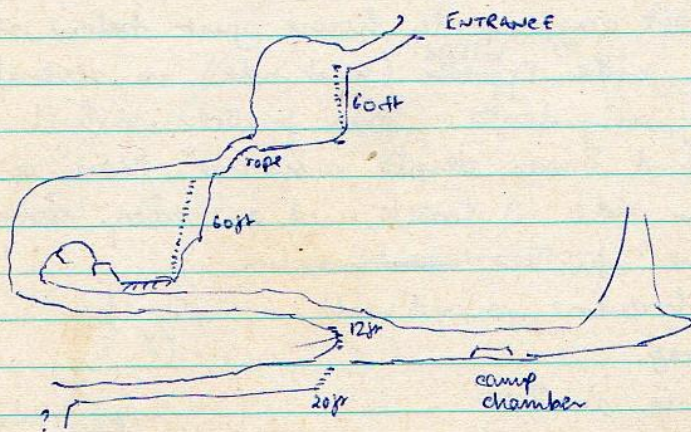 ENTRANCE
60ft
rope
60ft
12ft
20ft
camp
chamber
?